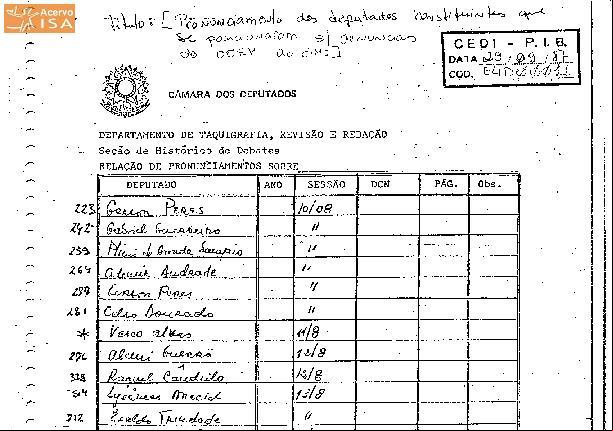 Acervo
ISA
Titulo: [Pronunciamento dos deputados constituintes que
se pronunciaram s/ denuncias
do OESP ao CIMI]
CEDI - P.I.B.
DATA 29/09/87
COD.
CÂMARA DOS DEPUTADOS
DEPARTAMENTO DE TAQUIGRAFIA, REVISÃO E REDAÇÃO
Seção de Histórico de Debates
RELAÇÃO DE PRONUNCIAMENTOS SOBRE
DEPUTADO ANO SESSÃO DCN PÁG. Obs.
223 Gerson Peres 10/08
242 Gabriel Guerreiro "
259 "
269 Andrade "
Gerson Peres "
281 Celso Dourado "
* Vasco Alves 11/8
276 Alceni Guerra 12/8
338 Raquel Cândido 12/8
Lysâneas Maciel 13/8
312 Eraldo Trindade "